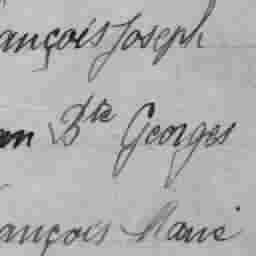 ançois Joseph
an Bte Georges
ançois Marie